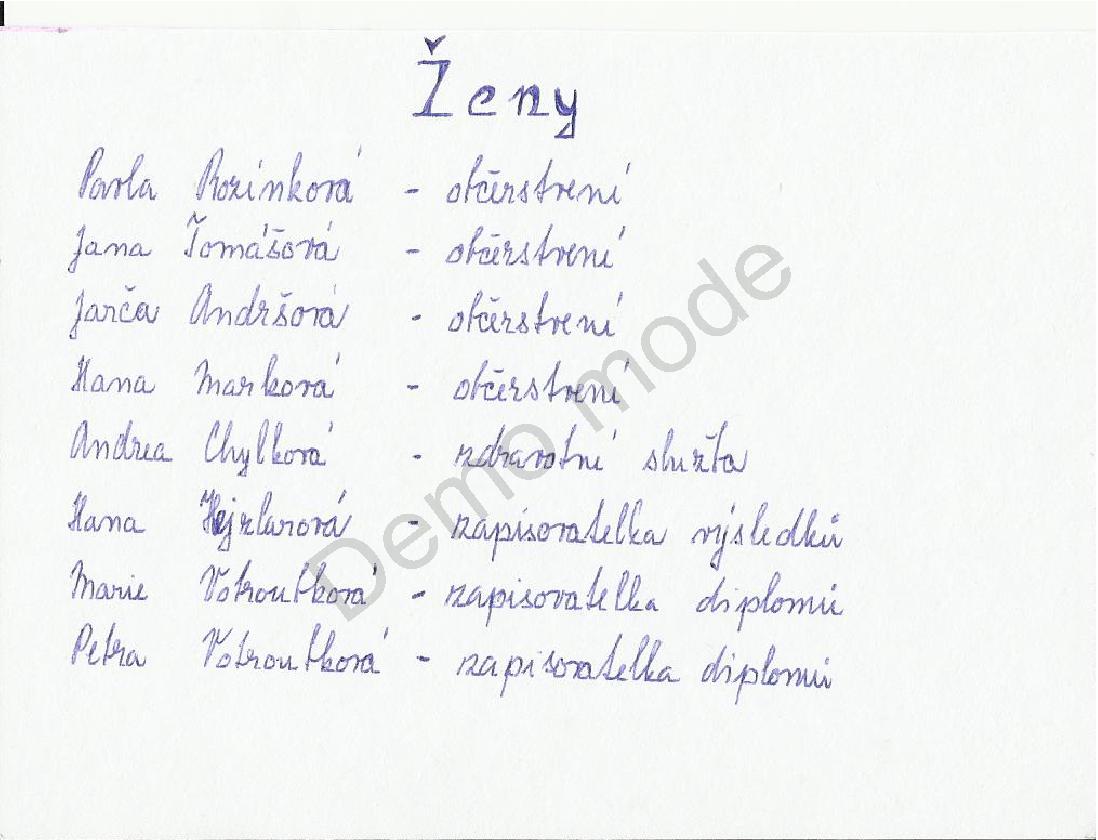 Ženy
Pavla Rozínková - občerstvení
Jana Tomášová - občerstvení
Jarča Andršová - občerstvení
Hana Marková - občerstvení
Andrea Chylková - zdravotní služba
Hana Hejzlarová - zapisovatelka výsledků
Marie Votroubková - zapisovatelka diplomů
Petra Votroubková - zapisovatelka diplomů
Demo mode